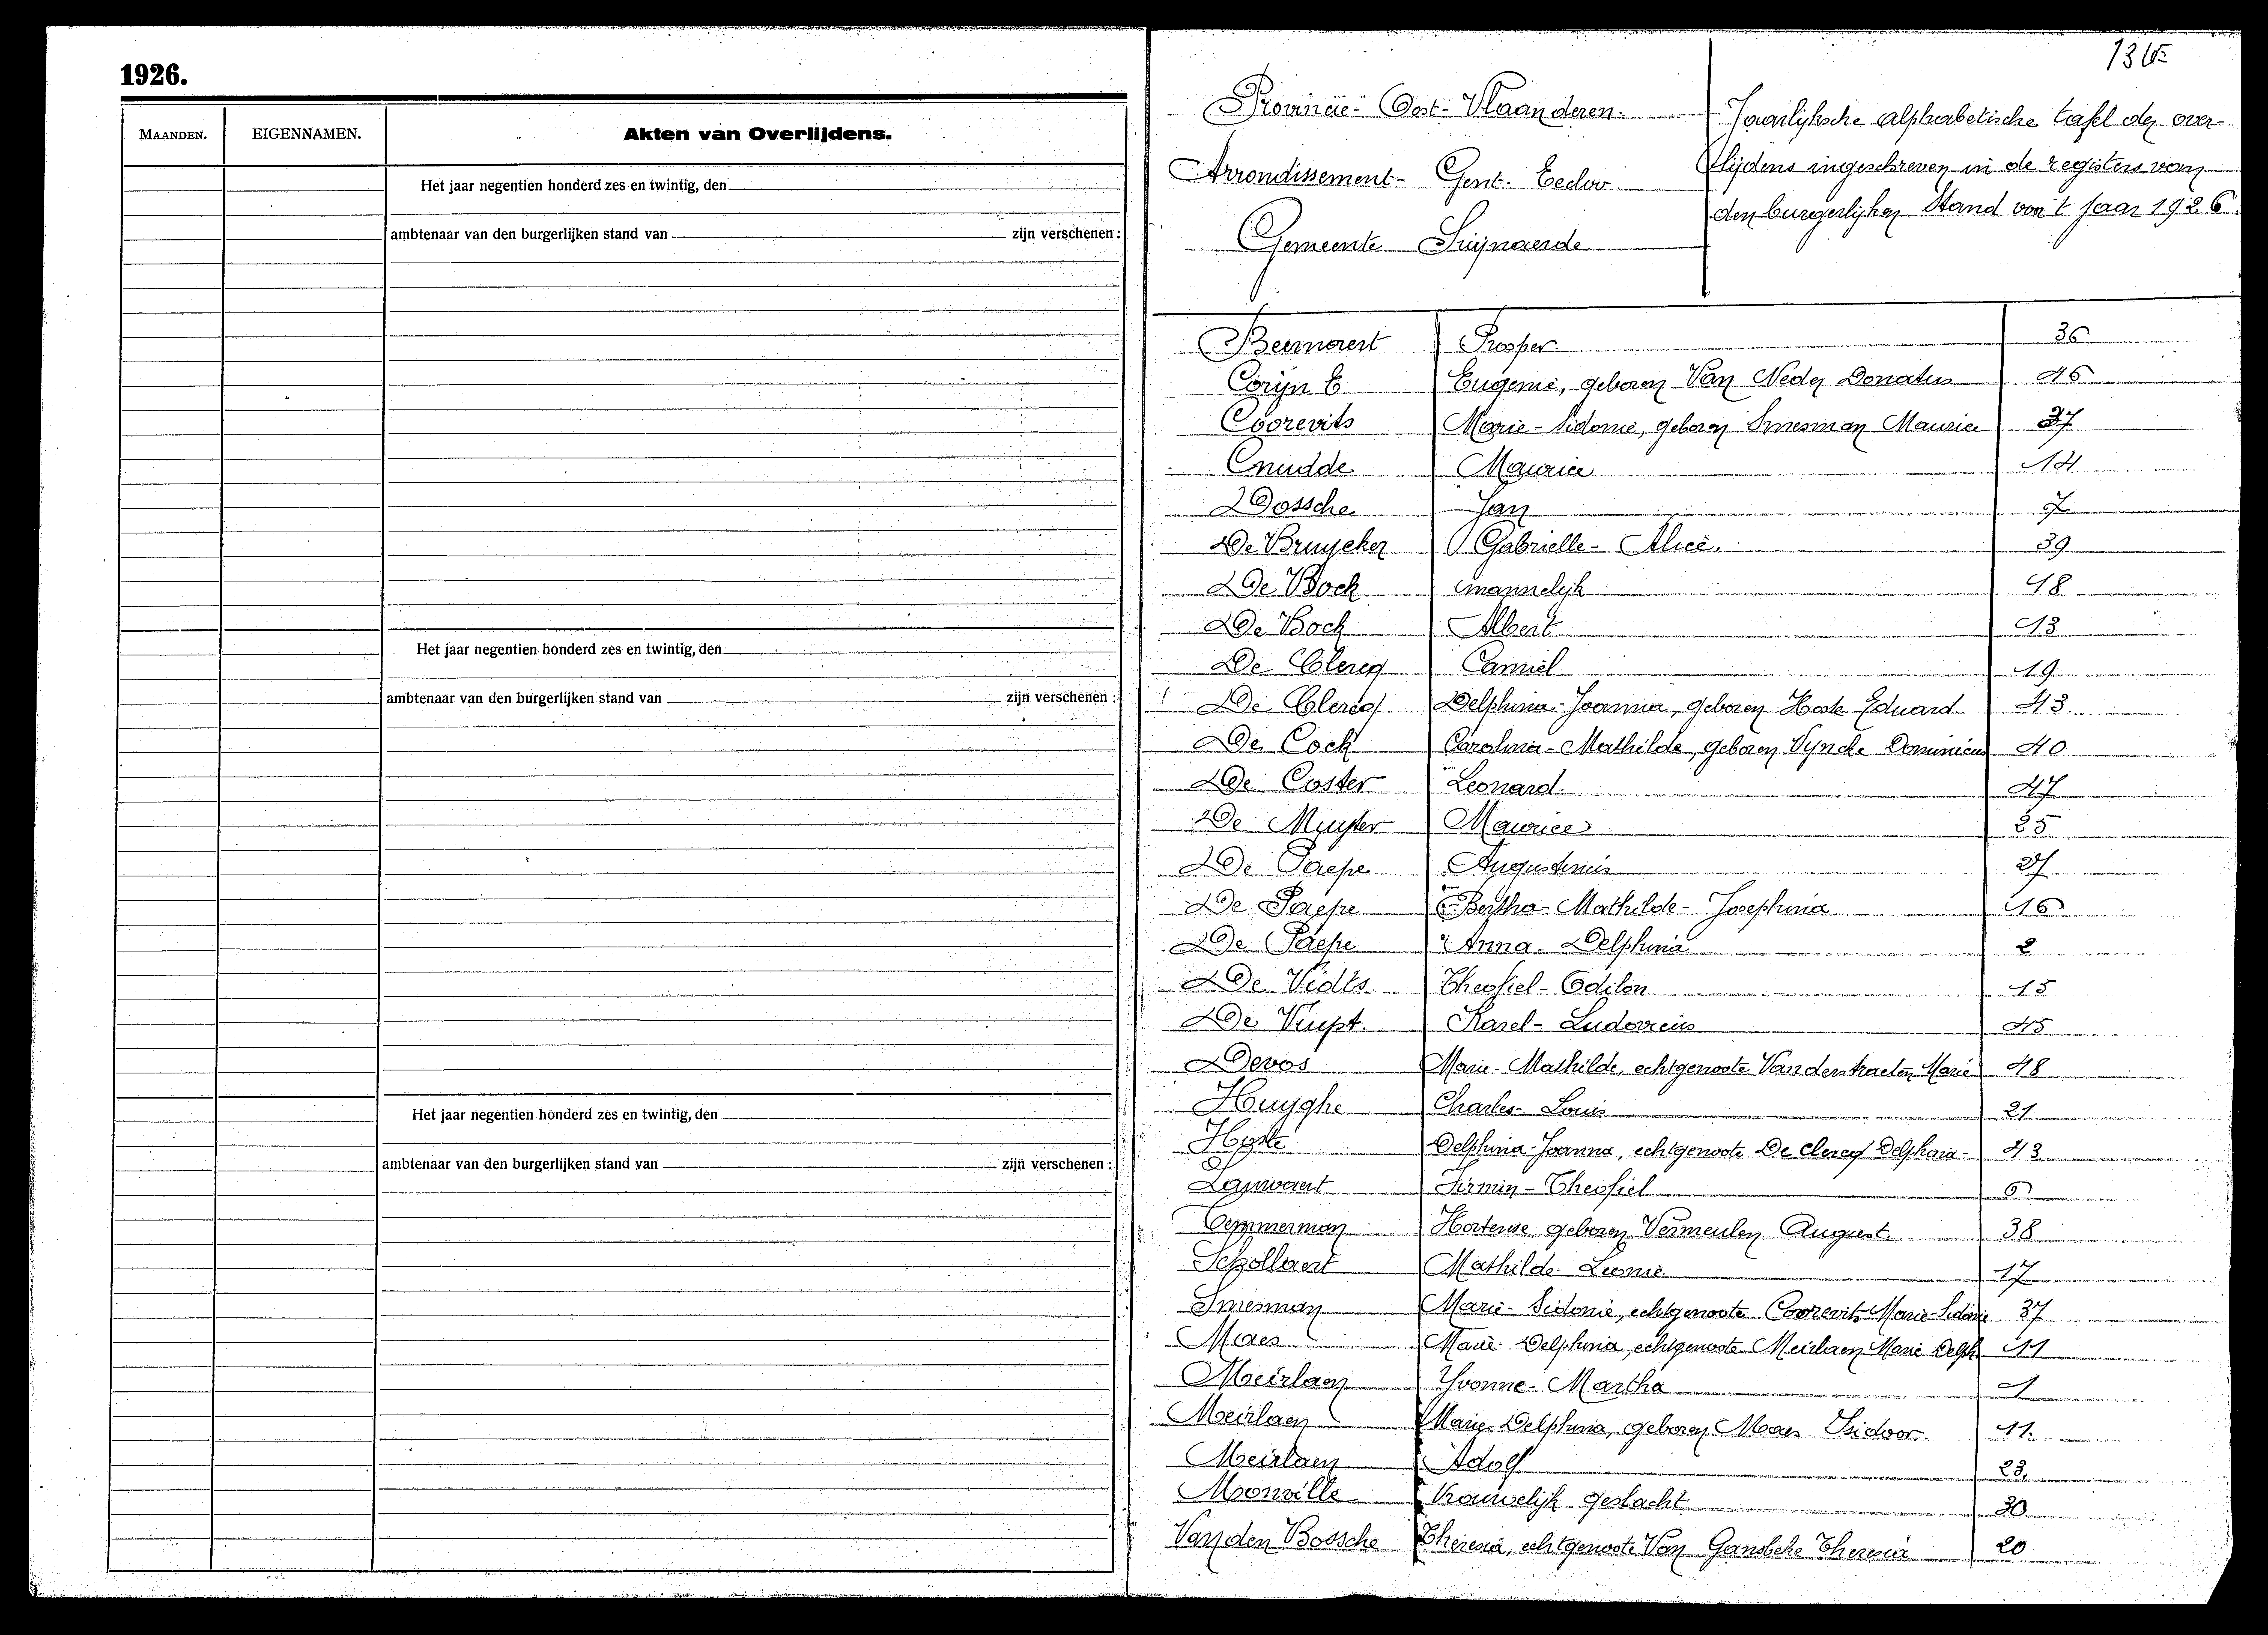 1926.
MAANDEN. EIGENNAMEN. Akten van Overlijdens.
Het jaar negentien honderd zes en twintig, den
ambtenaar van den burgerlijken stand van zijn verschenen :
Het jaar negentien honderd zes en twintig, den
ambtenaar van den burgerlijken stand van zijn verschenen :
Het jaar negentien honderd zes en twintig, den
ambtenaar van den burgerlijken stand van zijn verschenen :
Provincie - Oost - Vlaanderen.
Arrondissement - Gent - Eecloo
Gemeente Swijnaerde
Jaarlijksche alphabetische tafel der over-
lijdens ingeschreven in de registers van
den burgerlijken Stand van 't jaar 1926
Beernaert Prosper 36
Corijn E Eugenie, geboren Van Neder Donatus 46
Coorevits Marie - Sidonie, geboren Smesman Maurice 37
Cnudde Maurice 14
Dossche Jan 7
De Bruycker Gabrielle - Alice. 39
De Bock mannelijk 18
De Bock Albert 13
De Clercq Camiel 19
De Clercq Delphina - Joanna, geboren Hoste Eduard 43.
De Cock Carolina - Mathilde, geboren Vyncke Dominicus 40
De Coster Leonard. 47
De Muyter Maurice 25
De Paepe Augustinus 27
De Paepe Bertha - Mathilde - Josephina 16
De Paepe Anna - Delphina 2
De Vidts Theofiel - Odilon 15
De Vuyst. Karel - Ludovicus 45
Devos Marie - Mathilde, echtgenoote Vanderstraeten Marie 48
Huyghe Charles - Louis 21
Hoste Delphina - Joanna, echtgenoote De Clercq Delphina - 43
Lauwaert Firmin - Theofiel 6
Temmerman Hortense, geboren Vermeulen August. 38
Schollaert Mathilde - Leonie 17
Smesman Marie - Sidonie, echtgenoote Coorevits Marie-Sidonie 37
Maes Marie Delphina, echtgenoote Meirlaen Marie Delph 11
Meirlaen Yvonne - Martha 1
Meirlaen Marie Delphina, geboren Maes Isidoor. 11.
Meirlaen Adolf 23.
Monville Vrouwelijk geslacht 30
Van den Bossche Theresia, echtgenoote Van Gansbeke Theresia 20